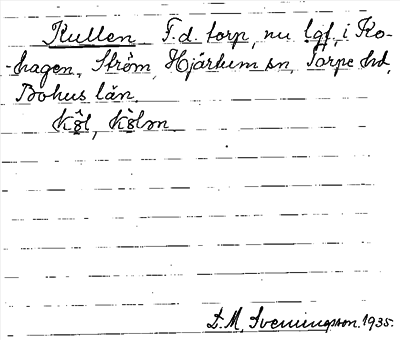 Kullen F.d. torp, nu lgf, i Ko-
-hagen, Ström, Hjärtum sn, Torpe hd,
Bohus län.
L. M. Svenungsson. 1935.